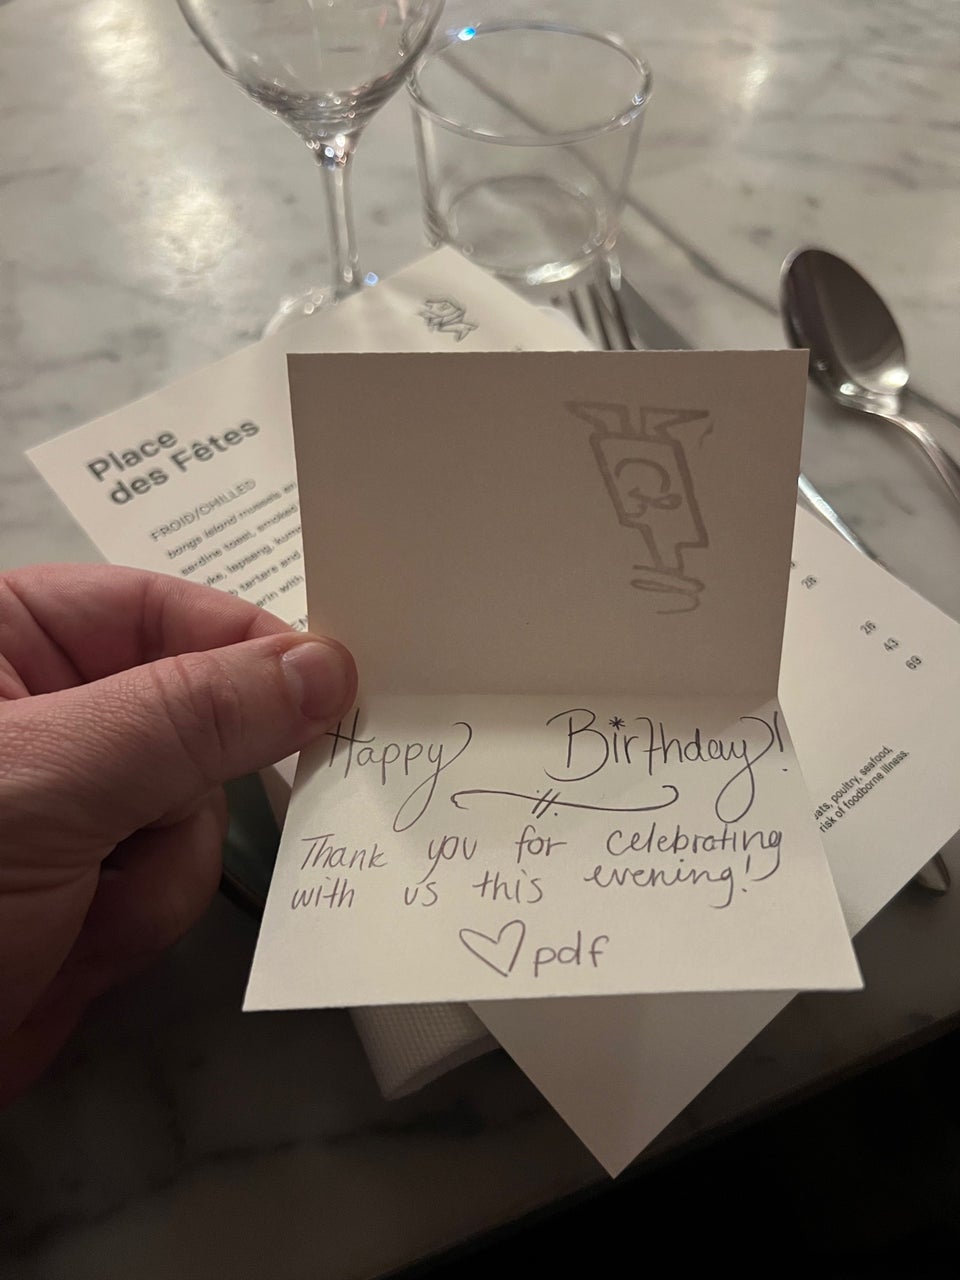 Place
des Fêtes
FROID/CHILLED
bangs island mussels
sardine toast, smoked
tartare and
with
28
26
43
69
poultry, seafood,
risk of foodborne illness.
Happy Birthday!
Thank you for celebrating
with us this evening!
♡ pdf